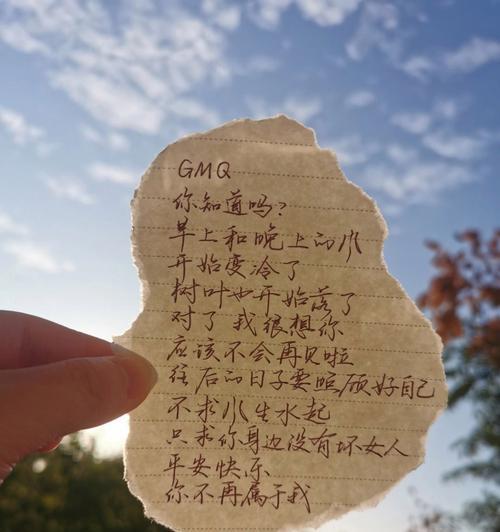 GMQ
你知道吗?
早上和晚上的水
开始变冷了
树叶也开始落了
对了 我很想你
应该不会再见啦
往后的日子要照顾好自己
不求水生水起
只求你身边没有坏女人
平安快乐
你不再属于我